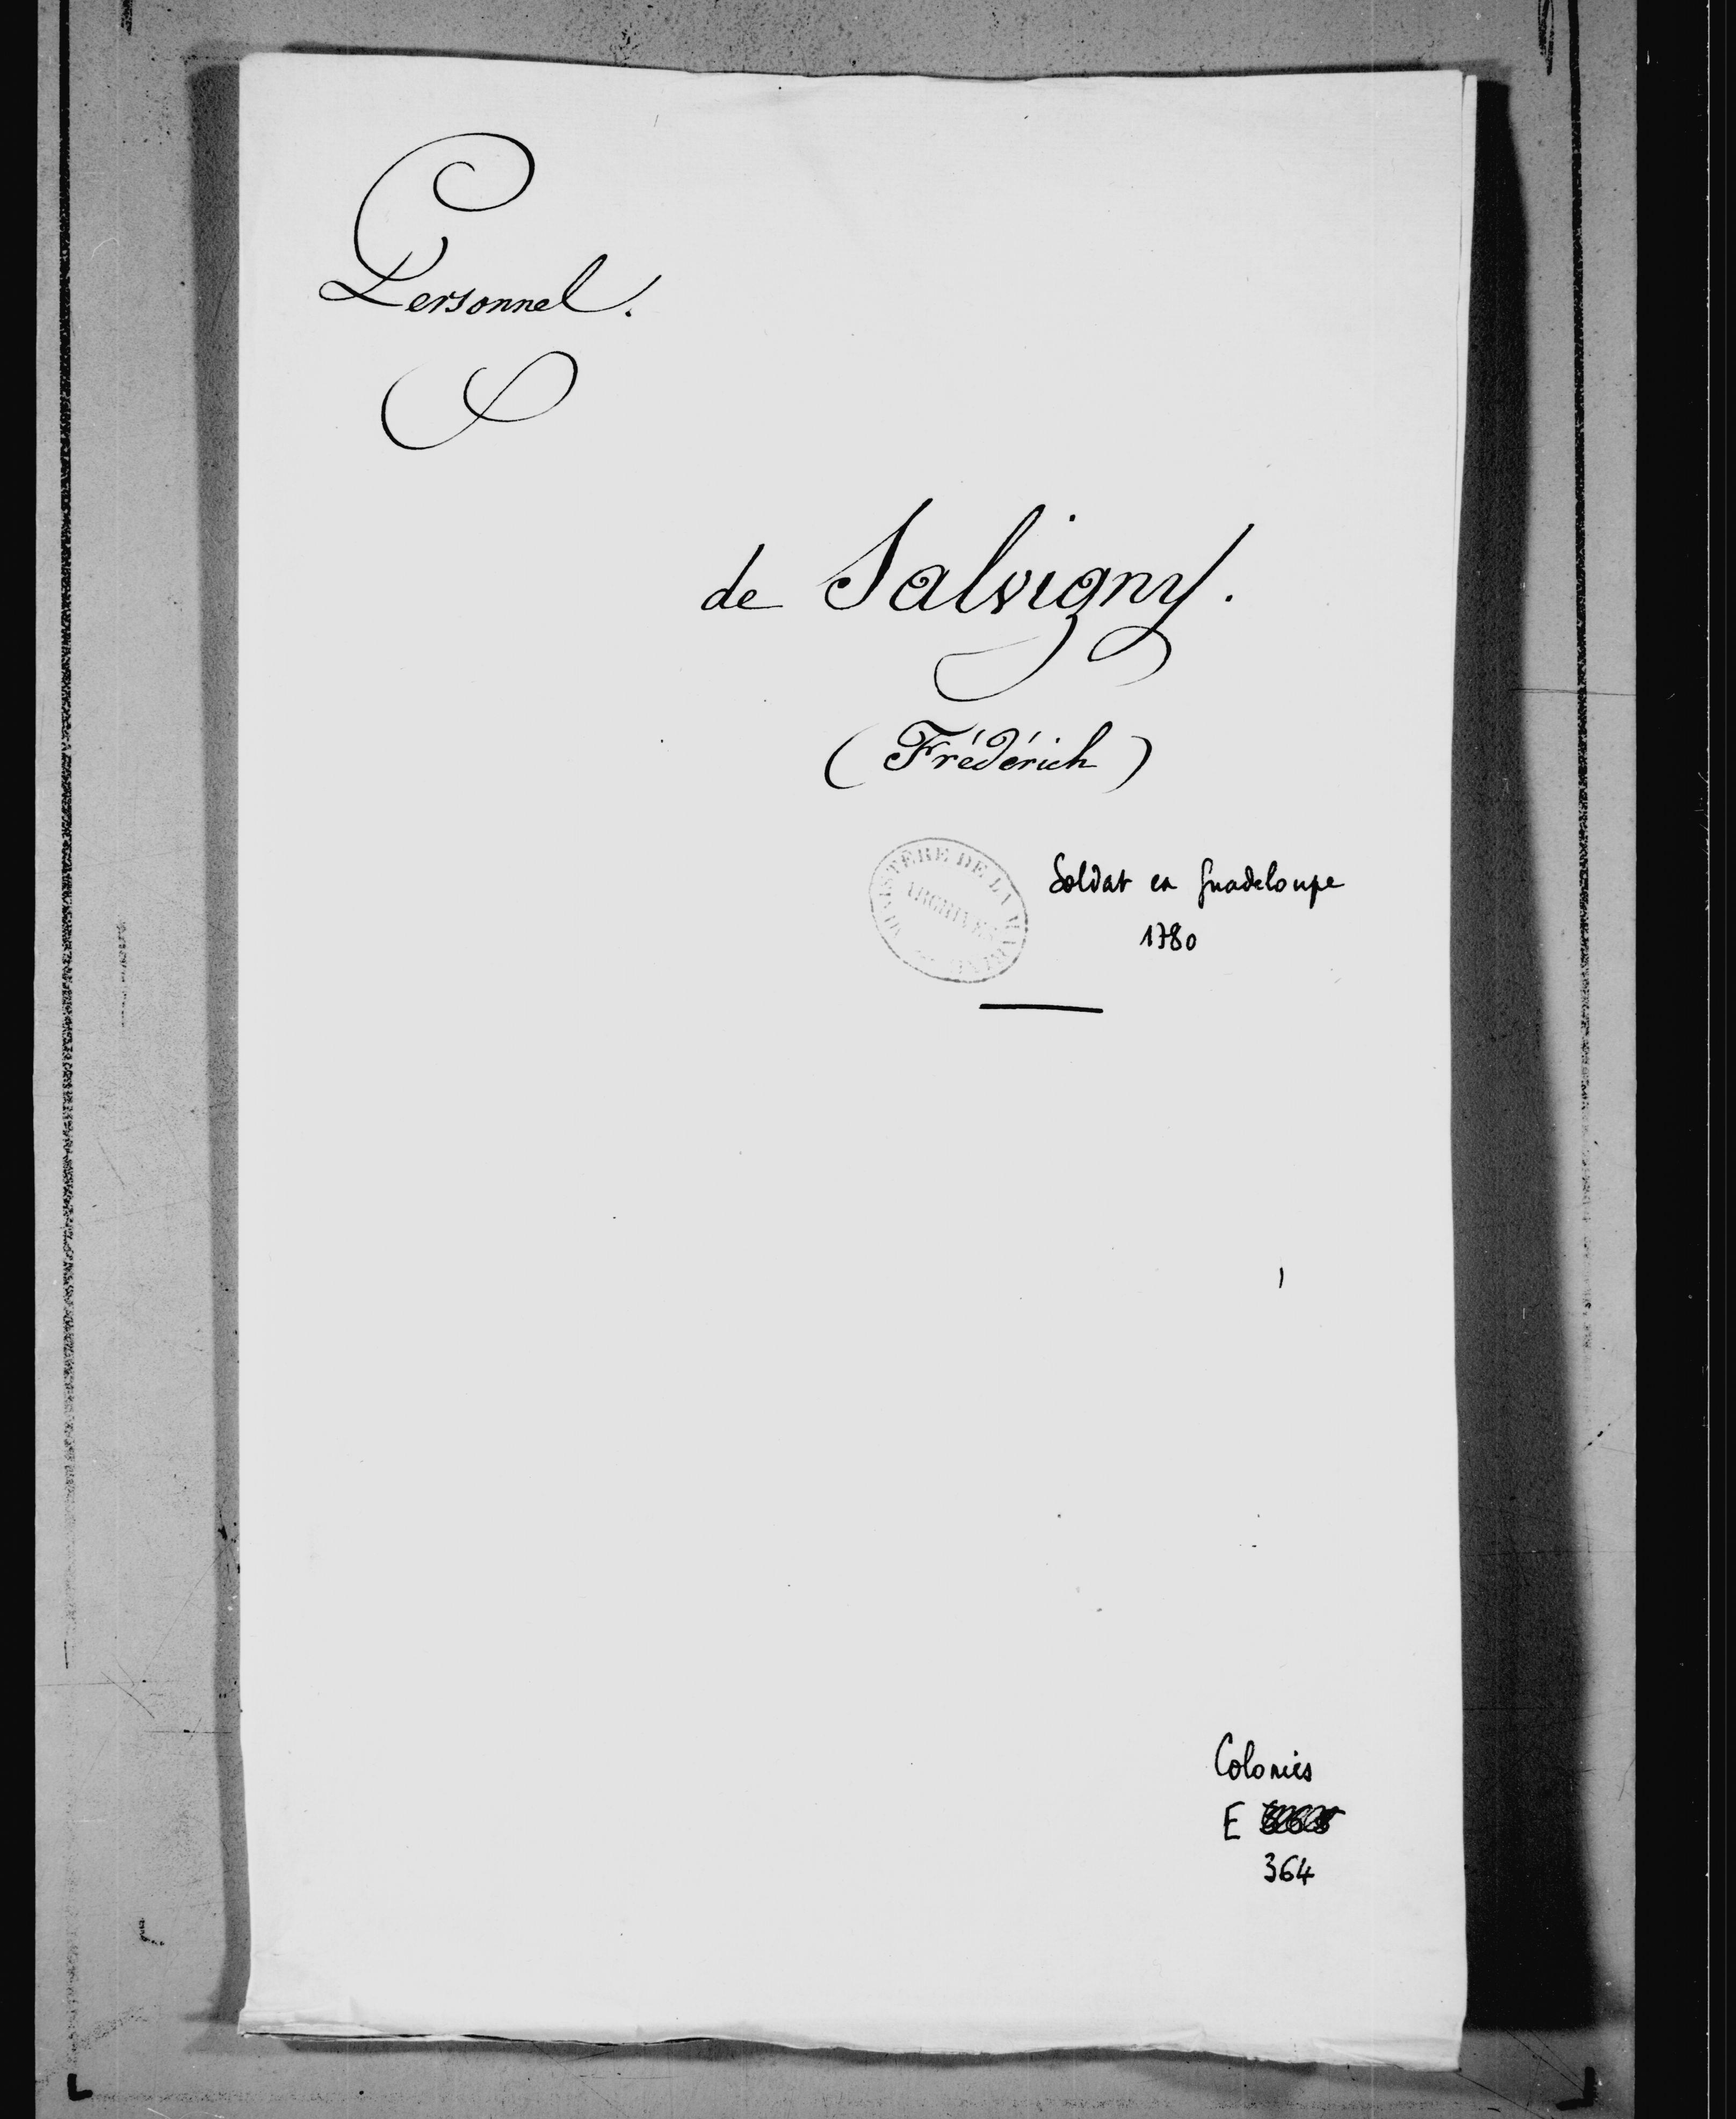 Personnel.
de Salvigny.
(Frédérich)
MINISTÈRE DE LA MARINE
ARCHIVES
Soldat en Guadeloupe
1780
Colonies
E
364